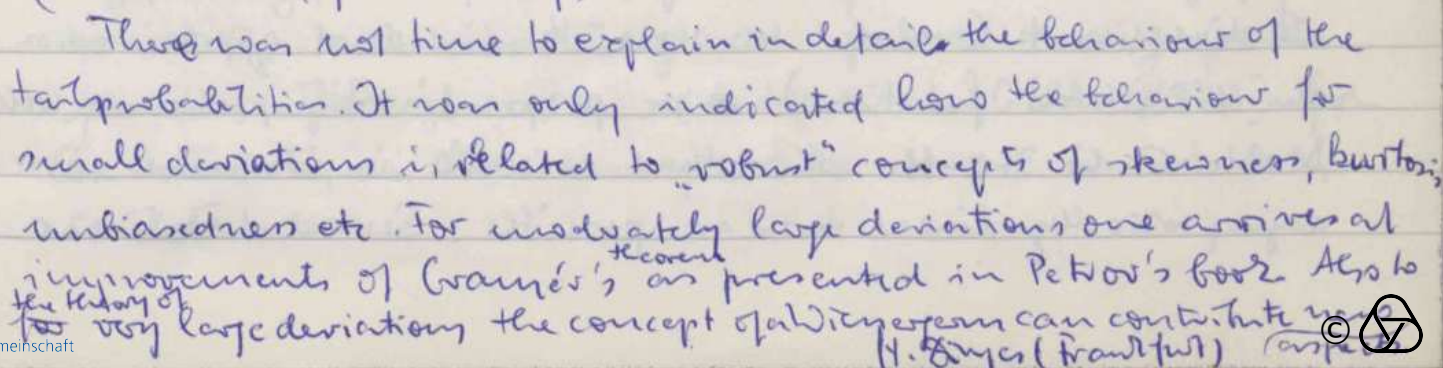 There was not time to explain in detail the behaviour of the
tailprobabilities. It was only indicated how the behaviour for
small deviations is related to „robust“ concepts of skewness, kurtosis,
unbiasedness etc. For moderately large deviations one arrives at
improvements of Cramér's theorem as presented in Petrov's book. Also to
the theory of very large deviations the concept of a Wienergerm can contribute
H. Dinges (Frankfurt) aspects
meinschaft
©